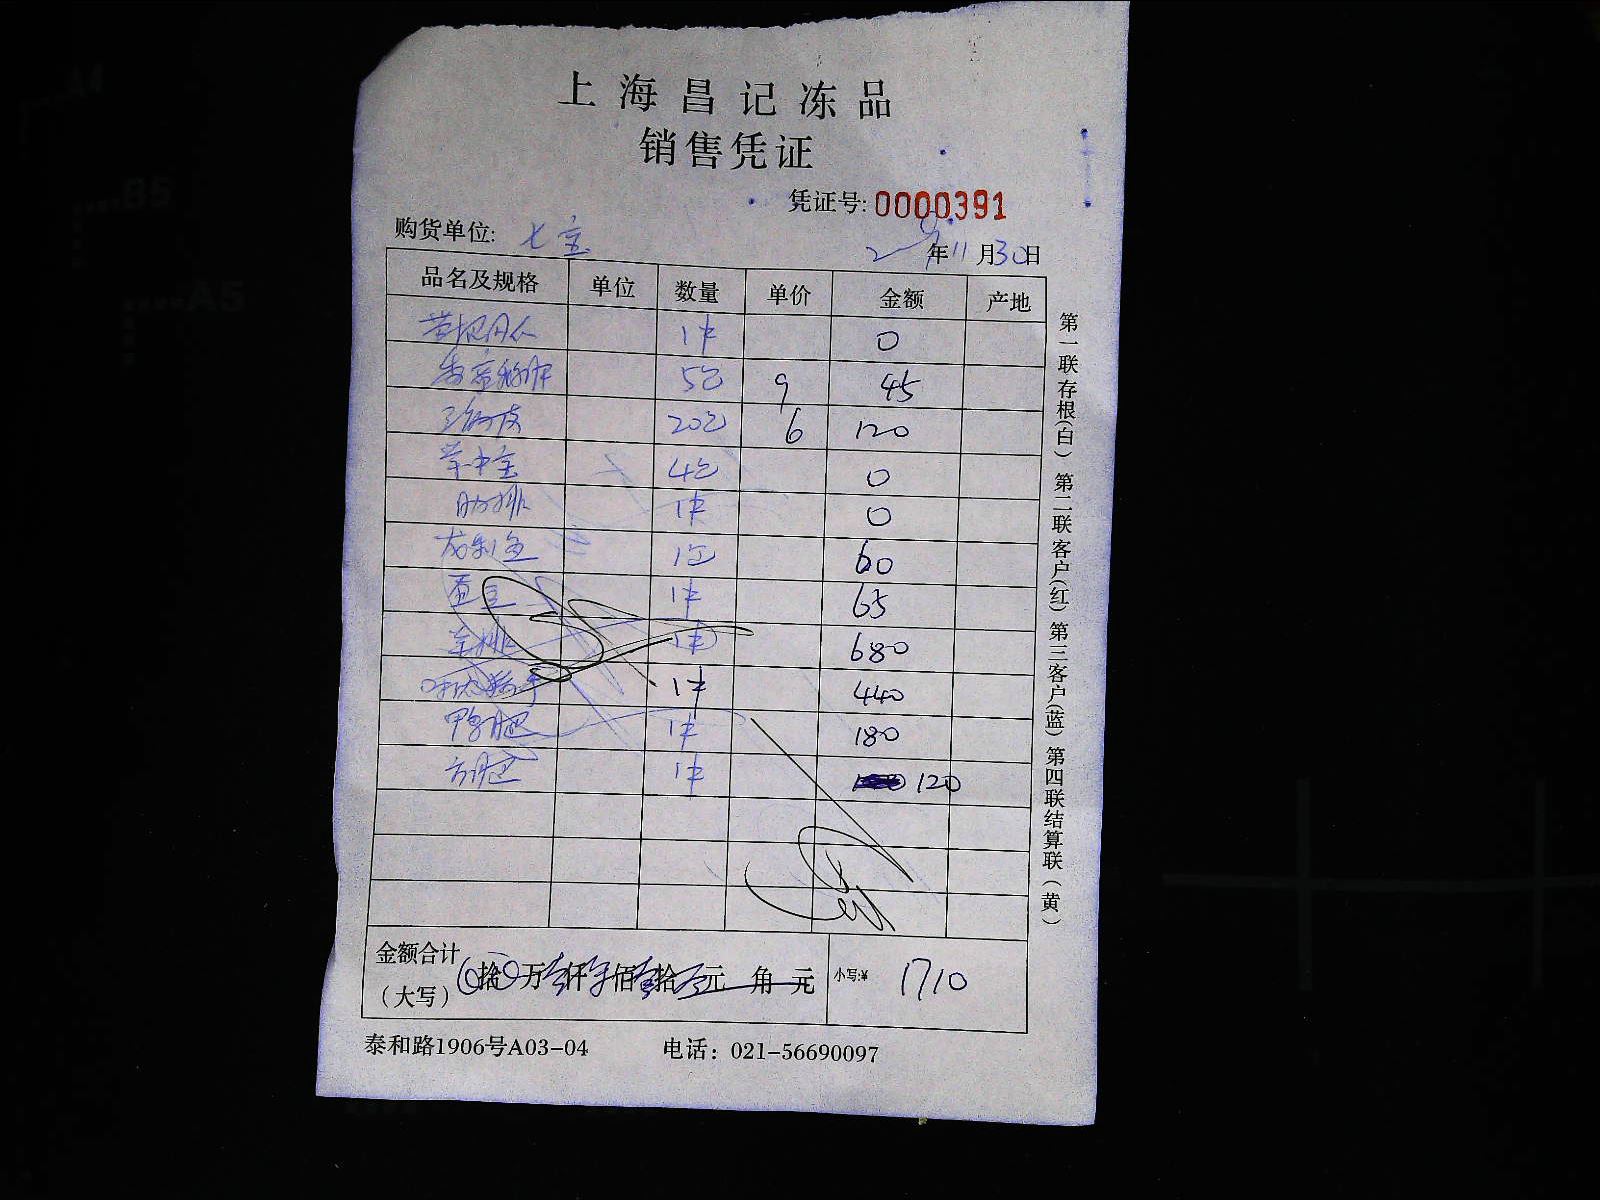 上海昌记冻品
销售凭证
凭证号: 0000391
购货单位: 七宝 年11月30日
品名及规格 单位 数量 单价 金额 产地
1件 0
5包 9 45
20包 6 120
4包 0
肋排 1件 0
龙利鱼 1包 60
蚕豆 1件 65
1件 680
1件 440
鸭肥 1件 180
方肥 1件 120
金额合计
(大写) 拾 万 仟 佰 拾 元 角 元 小写:¥ 1710
泰和路1906号A03-04 电话: 021-56690097
第一联存根(白) 第二联客户(红) 第三客户(蓝) 第四联结算联(黄)